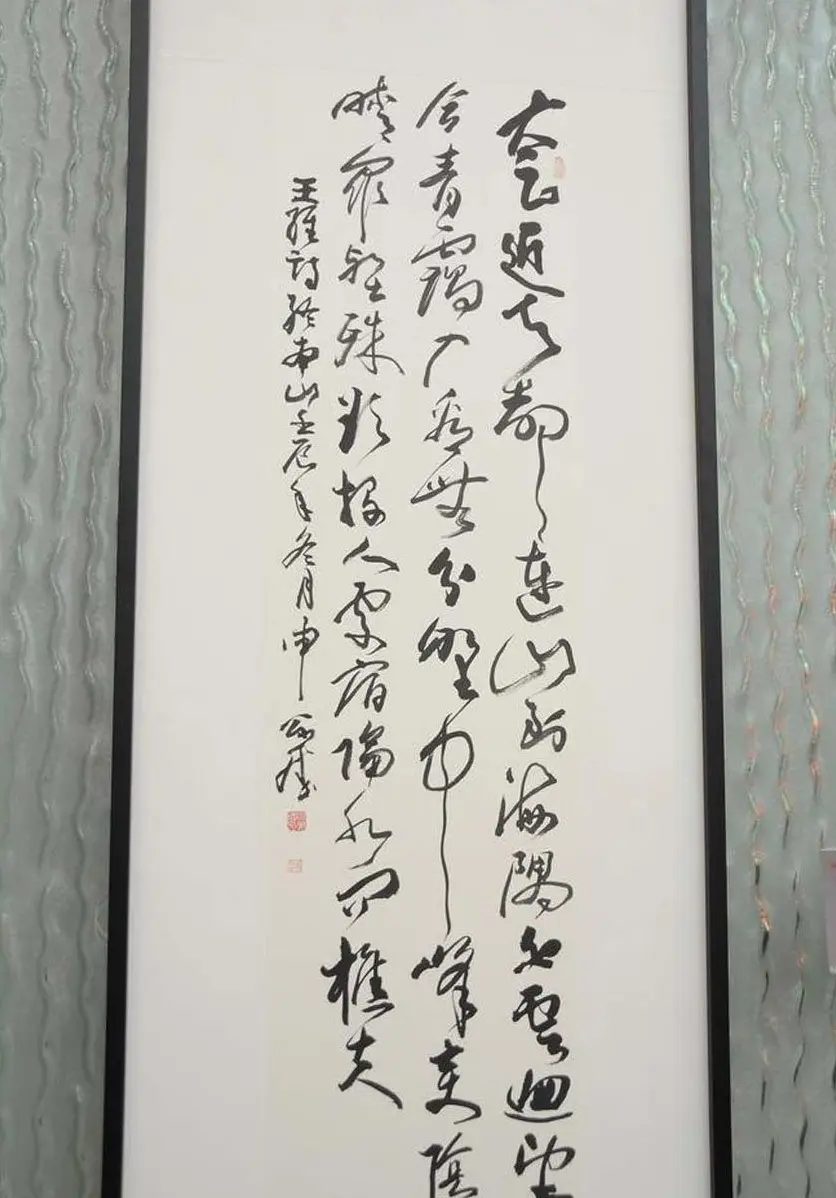 太乙近天都連山到海隅白雲迴望
合青靄入看無分野中峰變陰
晴衆壑殊欲投人處宿隔水問樵夫
王維詩終南山壬辰年冬月申